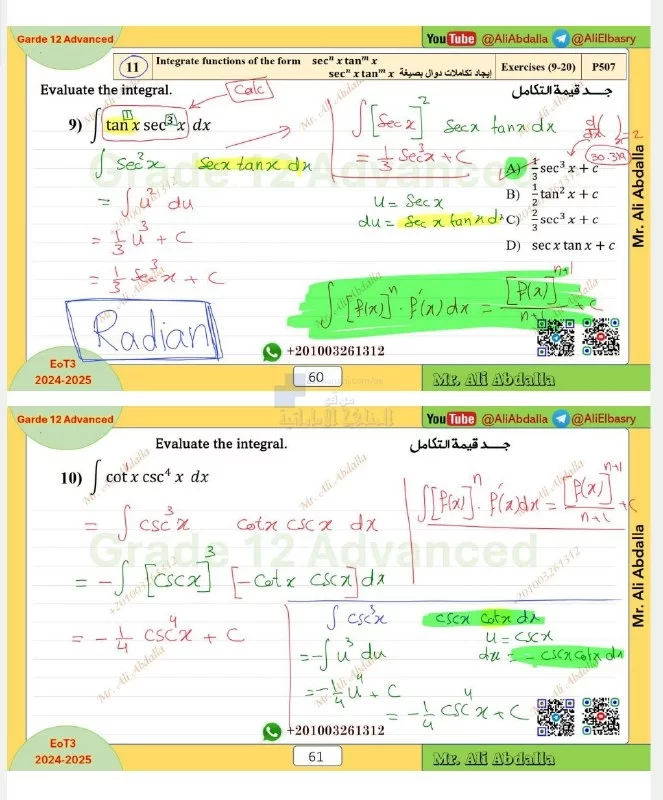 Garde 12 Advanced
YouTube @AliAbdalla @AliElbasry
11 Integrate functions of the form secⁿ x tanᵐ x
إيجاد تكاملات دوال بصيغة secⁿ x tanᵐ x
Exercises (9-20) P507
Evaluate the integral.
جـــد قيمة التكامل
Calc
9) ∫ tan x sec³ x dx
1
∫ sec² x secx tanx dx
= ∫ u² du
= 1/3 u³ + C
= 1/3 sec³ x + C
Radian
∫ [sec x]² secx tanx dx
= 1/3 sec³ x + C
u = sec x
du = sec x tan x dx
d/dx ( )x=2
A) 1/3 sec³ x + c
B) 1/2 tan² x + c
C) 2/3 sec³ x + c
D) sec x tan x + c
∫ [f(x)]ⁿ · f'(x) dx = [f(x)]ⁿ⁺¹ / n+1 + c
Mr. Ali Abdalla
+201003261312
EoT3
2024-2025
60
Mr. Ali Abdalla
موقع
المناهج الإماراتية
Garde 12 Advanced
YouTube @AliAbdalla @AliElbasry
Evaluate the integral.
جـــد قيمة التكامل
10) ∫ cot x csc⁴ x dx
= ∫ csc³ x cotx cscx dx
= -∫ [cscx]³ [-cotx cscx] dx
= -1/4 csc⁴ x + C
∫ [f(x)]ⁿ · f'(x) dx = [f(x)]ⁿ⁺¹ / n+1 + c
Grade 12 Advanced
∫ csc³ x cscx cotx dx
u = cscx
du = -cscx cotx dx
= -∫ u³ du
= -1/4 u⁴ + C
= -1/4 csc⁴ x + C
Mr. Ali Abdalla
+201003261312
EoT3
2024-2025
61
Mr. Ali Abdalla